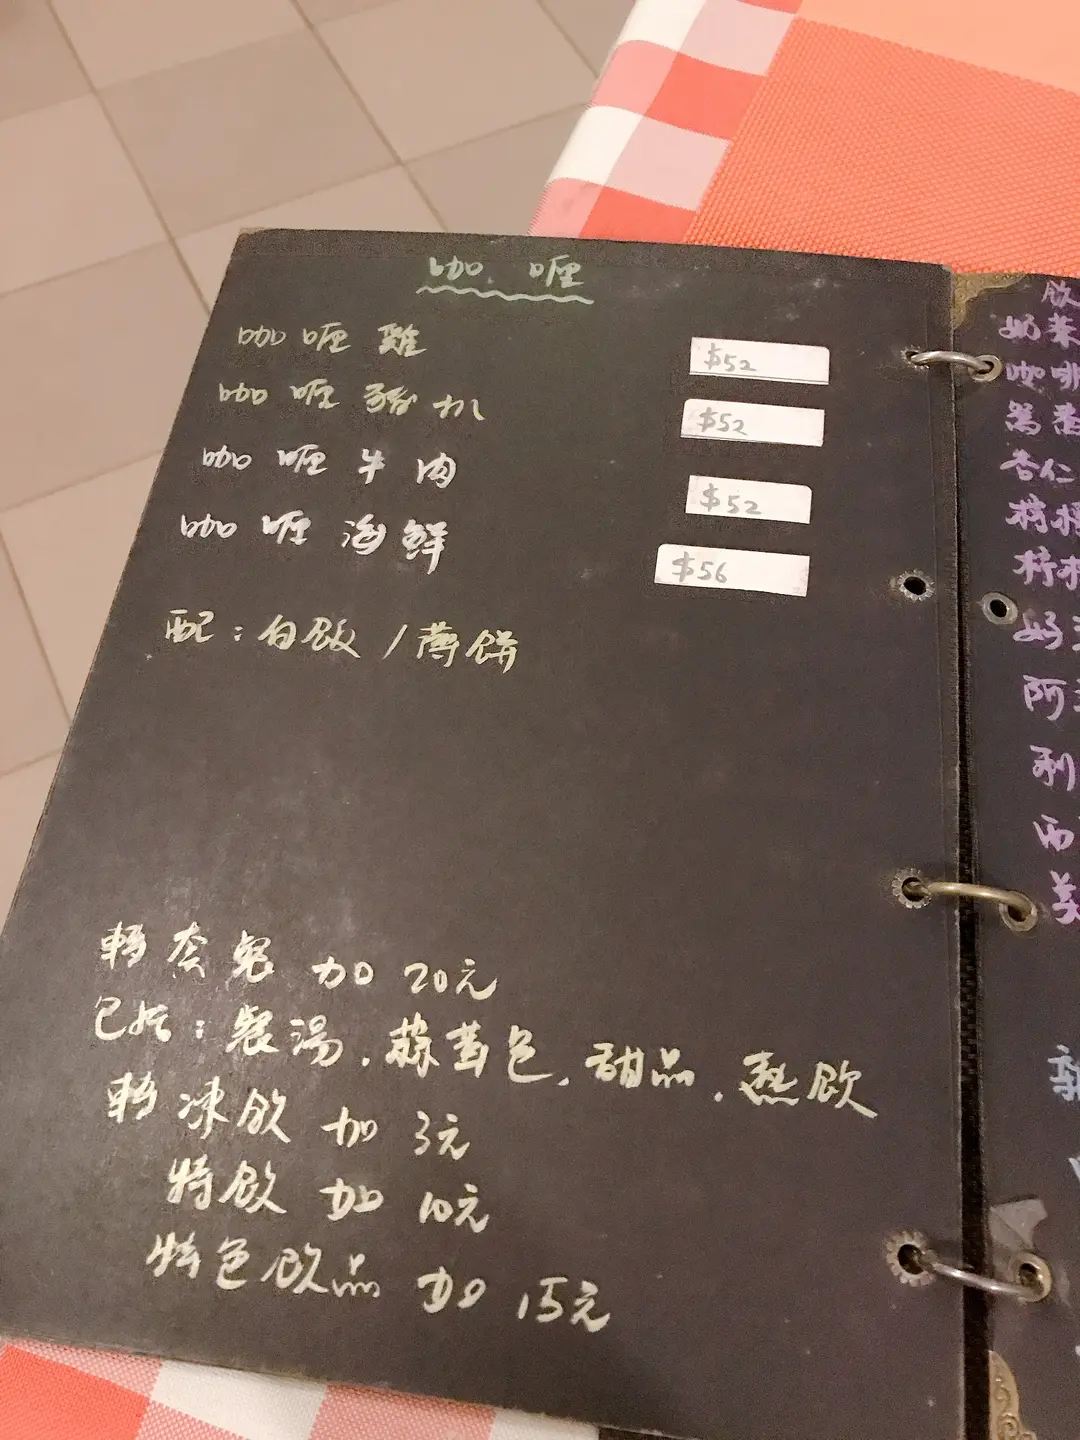 咖喱
咖喱雞 $52
咖喱豬扒 $52
咖喱牛肉 $52
咖喱海鮮 $56
配:白飯/薄餅
轉套餐 加 20元
包括:餐湯,蒜茸包,甜品,熱飲
轉凍飲 加 3元
特飲 加 10元
特色飲品 加 15元
飲
奶茶
咖啡
杏仁
檸
檸
好
阿
利
西
美